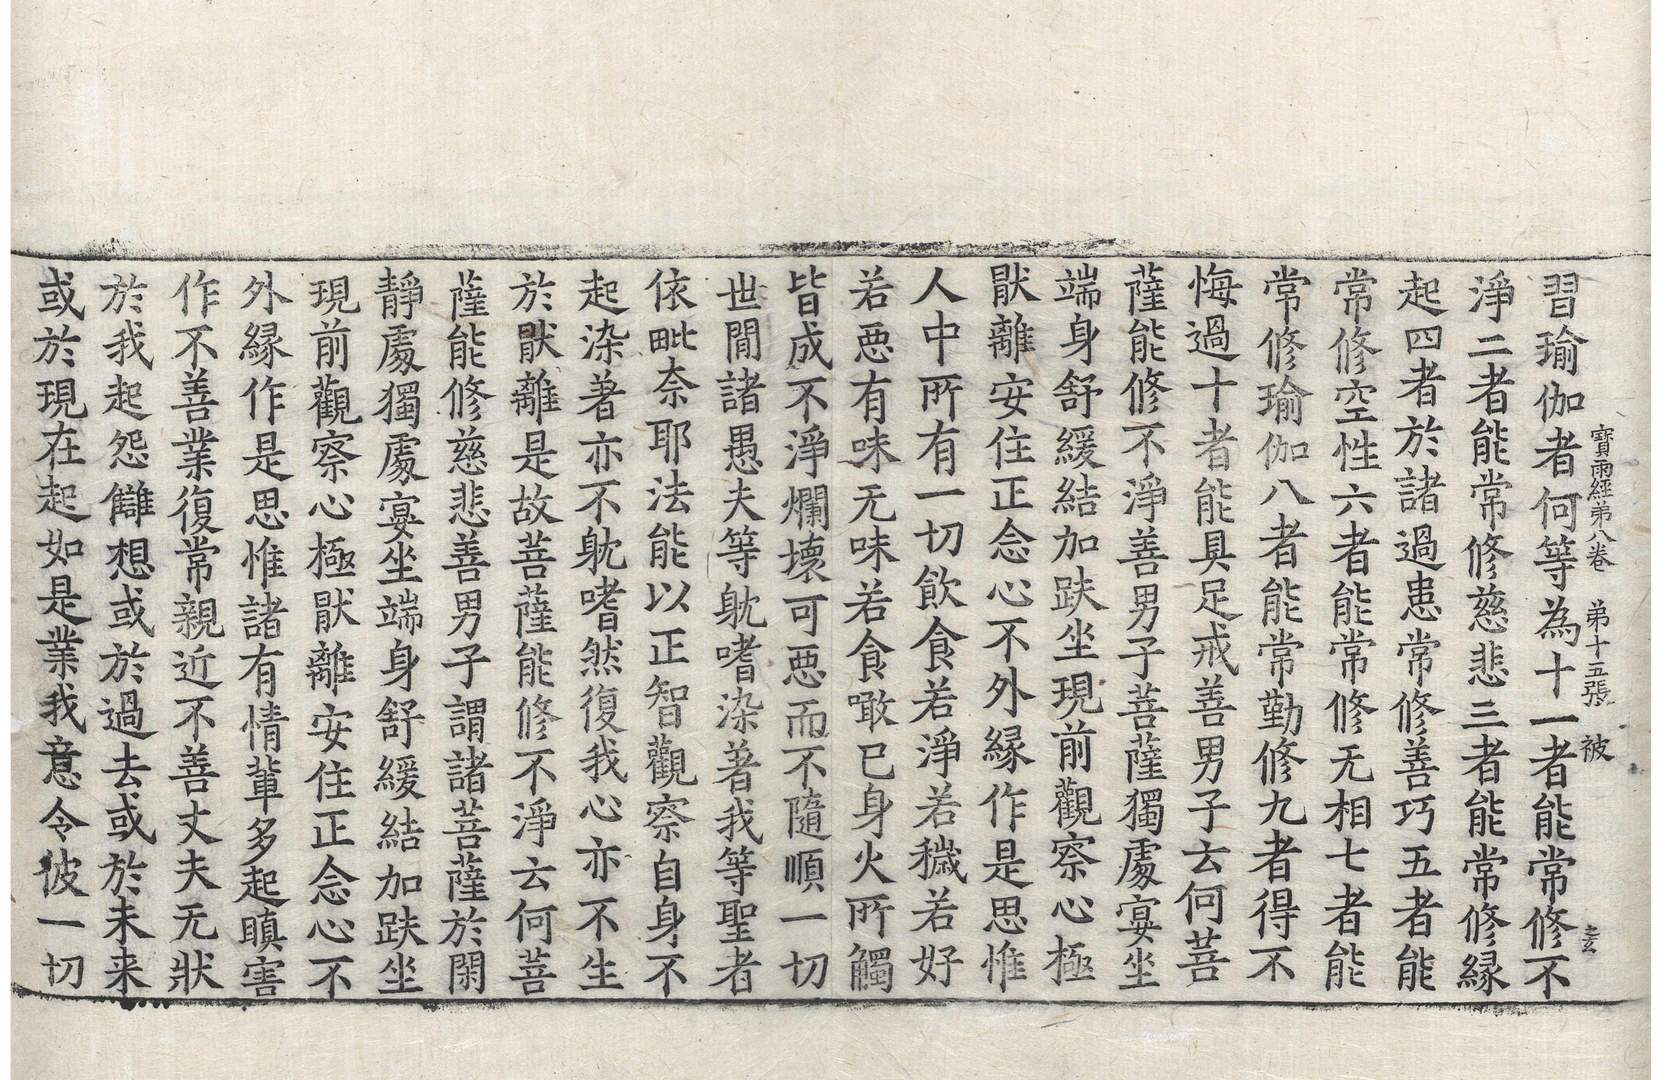 寶雨經弟八卷 弟十五張 被
習瑜伽者何等為十一者能常修不
淨二者能常修慈悲三者能常修緣
起四者於諸過患常修善巧五者能
常修空性六者能常修无相七者能
常修瑜伽八者能常勤修九者得不
悔過十者能具足戒善男子云何菩
薩能修不淨善男子菩薩獨處宴坐
端身舒緩結加趺坐現前觀察心極
猒離安住正念心不外緣作是思惟
人中所有一切飲食若淨若穢若好
若惡有味无味若食噉已身火所觸
皆成不淨爛壞可惡而不隨順一切
世間諸愚夫等躭嗜染著我等聖者
依毗奈耶法能以正智觀察自身不
起染著亦不躭嗜然復我心亦不生
於猒離是故菩薩能修不淨云何菩
薩能修慈悲善男子謂諸菩薩於閑
靜處獨處宴坐端身舒緩結加趺坐
現前觀察心極猒離安住正念心不
外緣作是思惟諸有情輩多起瞋害
作不善業復常親近不善丈夫无狀
於我起怨讎想或於過去或於未来
或於現在起如是業我意令彼一切